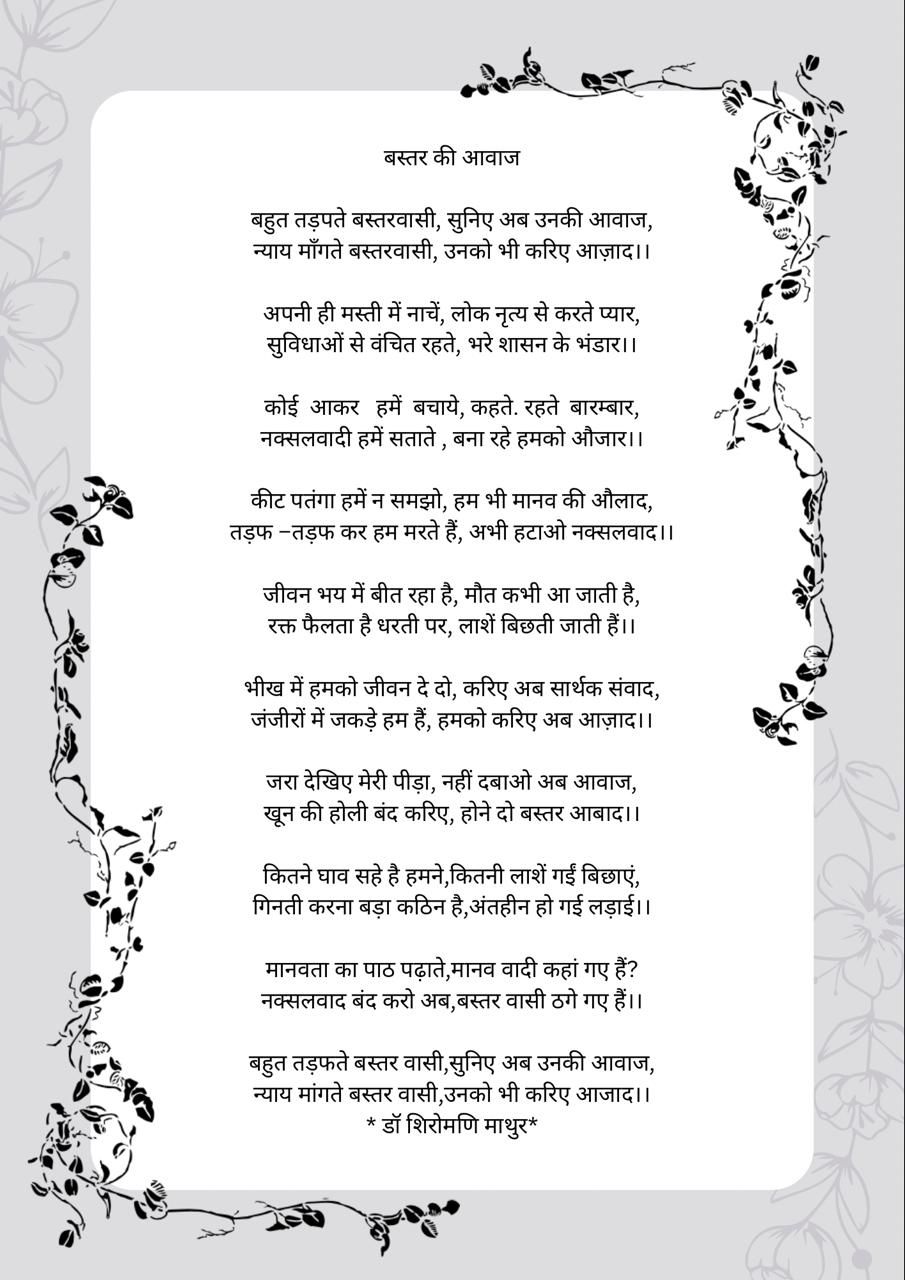 बस्तर की आवाज
बहुत तड़पते बस्तरवासी, सुनिए अब उनकी आवाज,
न्याय माँगते बस्तरवासी, उनको भी करिए आज़ाद।।
अपनी ही मस्ती में नाचें, लोक नृत्य से करते प्यार,
सुविधाओं से वंचित रहते, भरे शासन के भंडार।।
कोई आकर हमें बचाये, कहते. रहते बारम्बार,
नक्सलवादी हमें सताते , बना रहे हमको औजार।।
कीट पतंगा हमें न समझो, हम भी मानव की औलाद,
तड़फ –तड़फ कर हम मरते हैं, अभी हटाओ नक्सलवाद।।
जीवन भय में बीत रहा है, मौत कभी आ जाती है,
रक्त फैलता है धरती पर, लाशें बिछती जाती हैं।।
भीख में हमको जीवन दे दो, करिए अब सार्थक संवाद,
जंजीरों में जकड़े हम हैं, हमको करिए अब आज़ाद।।
जरा देखिए मेरी पीड़ा, नहीं दबाओ अब आवाज,
खून की होली बंद करिए, होने दो बस्तर आबाद।।
कितने घाव सहे है हमने,कितनी लाशें गईं बिछाएं,
गिनती करना बड़ा कठिन है,अंतहीन हो गई लड़ाई।।
मानवता का पाठ पढ़ाते,मानव वादी कहां गए हैं?
नक्सलवाद बंद करो अब,बस्तर वासी ठगे गए हैं।।
बहुत तड़फते बस्तर वासी,सुनिए अब उनकी आवाज,
न्याय मांगते बस्तर वासी,उनको भी करिए आजाद।।
* डॉ शिरोमणि माथुर*